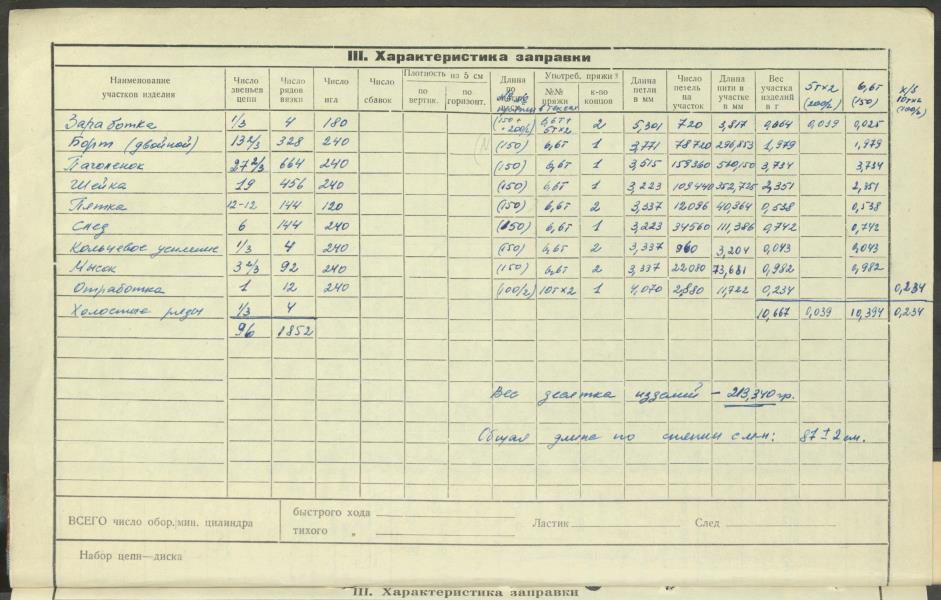 III. Характеристика заправки
Наименование участков изделия | Число звеньев цепи | Число рядов вязки | Число игл | Число сбавок | Плотность из 5 см по вертик. | по горизонт. | Длина по | Употреб. пряжи №№ пряжи в тексах | к-по концов | Длина петли в мм | Число петель на участок | Длина нити в участке в мм | Вес участка изделий в г | 5тх2 (200/2) | 6,6т (150) | х/б 10тх2 (100/2)
Заработка | 1/3 | 4 | 180 | (150 + +200/2) | 6,6т+ 5тх2 | 2 | 5,301 | 720 | 3,817 | 0,064 | 0,039 | 0,025
Борт (двойной) | 13 2/3 | 328 | 240 | (150) | 6,6т | 1 | 3,771 | 78720 | 296,853 | 1,979 | 1,979
Паголенок | 27 2/3 | 664 | 240 | (150) | 6,6т | 1 | 3,515 | 159360 | 560,150 | 3,734 | 3,734
Шейка | 19 | 456 | 240 | (150) | 6,6т | 1 | 3,223 | 109440 | 352,725 | 2,351 | 2,351
Пятка | 12-12 | 144 | 120 | (150) | 6,6т | 2 | 3,337 | 12096 | 40,364 | 0,538 | 0,538
След | 6 | 144 | 240 | (150) | 6,6т | 1 | 3,223 | 34560 | 111,386 | 0,742 | 0,742
Кольцевое усиление | 1/3 | 4 | 240 | (150) | 6,6т | 2 | 3,337 | 960 | 3,204 | 0,043 | 0,043
Мысок | 3 2/3 | 92 | 240 | (150) | 6,6т | 2 | 3,337 | 22080 | 73,681 | 0,982 | 0,982
Отработка | 1 | 12 | 240 | (100/2) | 10тх2 | 1 | 4,070 | 2,880 | 11,722 | 0,234 | 0,234
Холостые ряды | 1/3 | 4 | 10,667 | 0,039 | 10,394 | 0,234
96 | 1852
Вес десятка изделий – 213,340 гр.
Общая длина по : 87 ± 2 см.
ВСЕГО число обор. мин. цилиндра
быстрого хода
тихого „
Ластик
След
Набор цепи—диска
III. Характеристика заправки